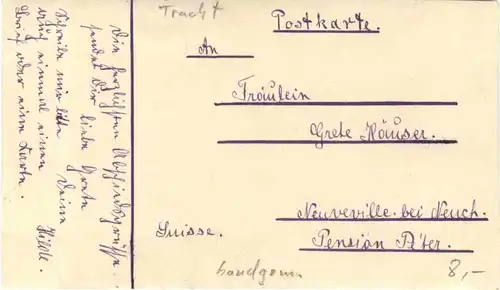 Tracht
Postkarte.
An
Fräulein
Grete Häuser.
Neuveville. bei Neuch.
Pension
Suisse.
handgem.
8,-
Die herzlichsten Abschiedsgrüsse
sendet Dir liebe Grete
Deine
Hilde.
Schreibe mir bitte
auch einmal einen
Brief oder eine Karte.